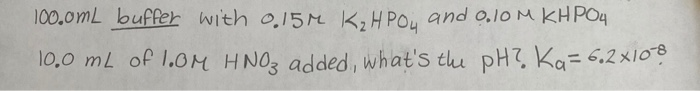 100.0mL buffer with 0.15M K₂HPO₄ and 0.10M KHPO₄
10.0 mL of 1.0M HNO₃ added, what's the pH? Ka=6.2x10⁻⁸